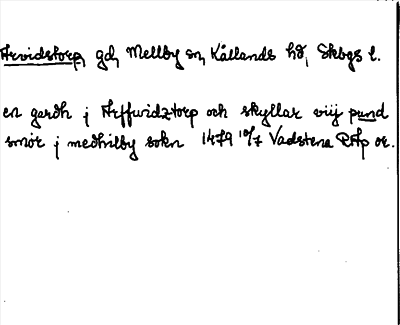 Arvidstorp, gd, Mellby sn, Kållands hd, Skbgs l.
en gardh j Arffwidztorp och skyllar viij pund
smör j medhilby sokn 1479 10/7 Vadstena RAp or.